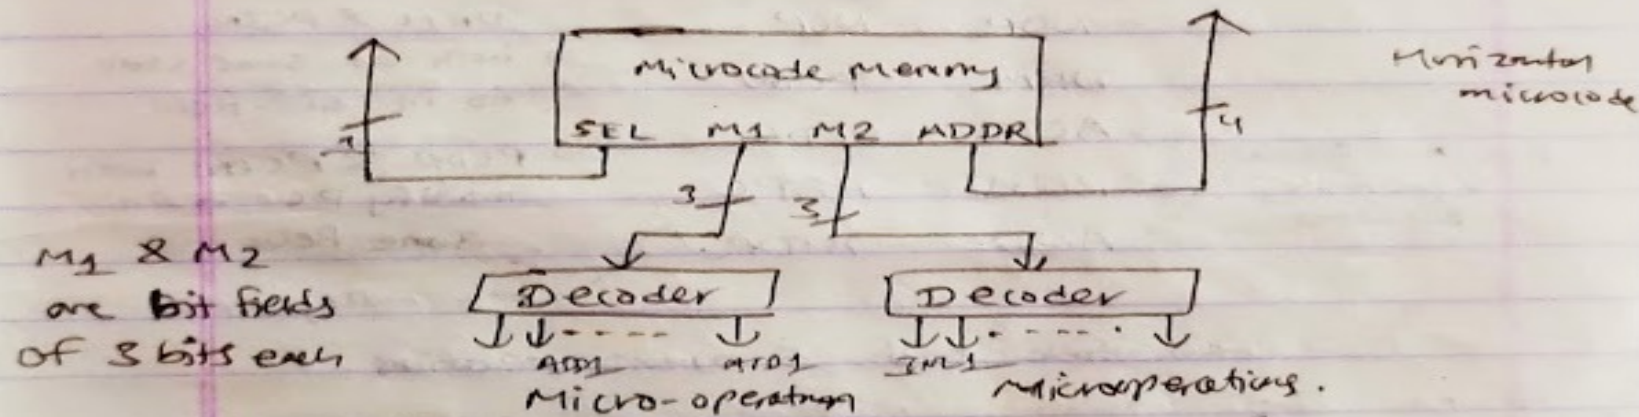 Microcode Memory
SEL M1 M2 ADDR
1
4
Horizontal
microcode
3
3
M1 & M2
are bit fields
of 3 bits each
Decoder
Decoder
Micro-operation
Microoperations.